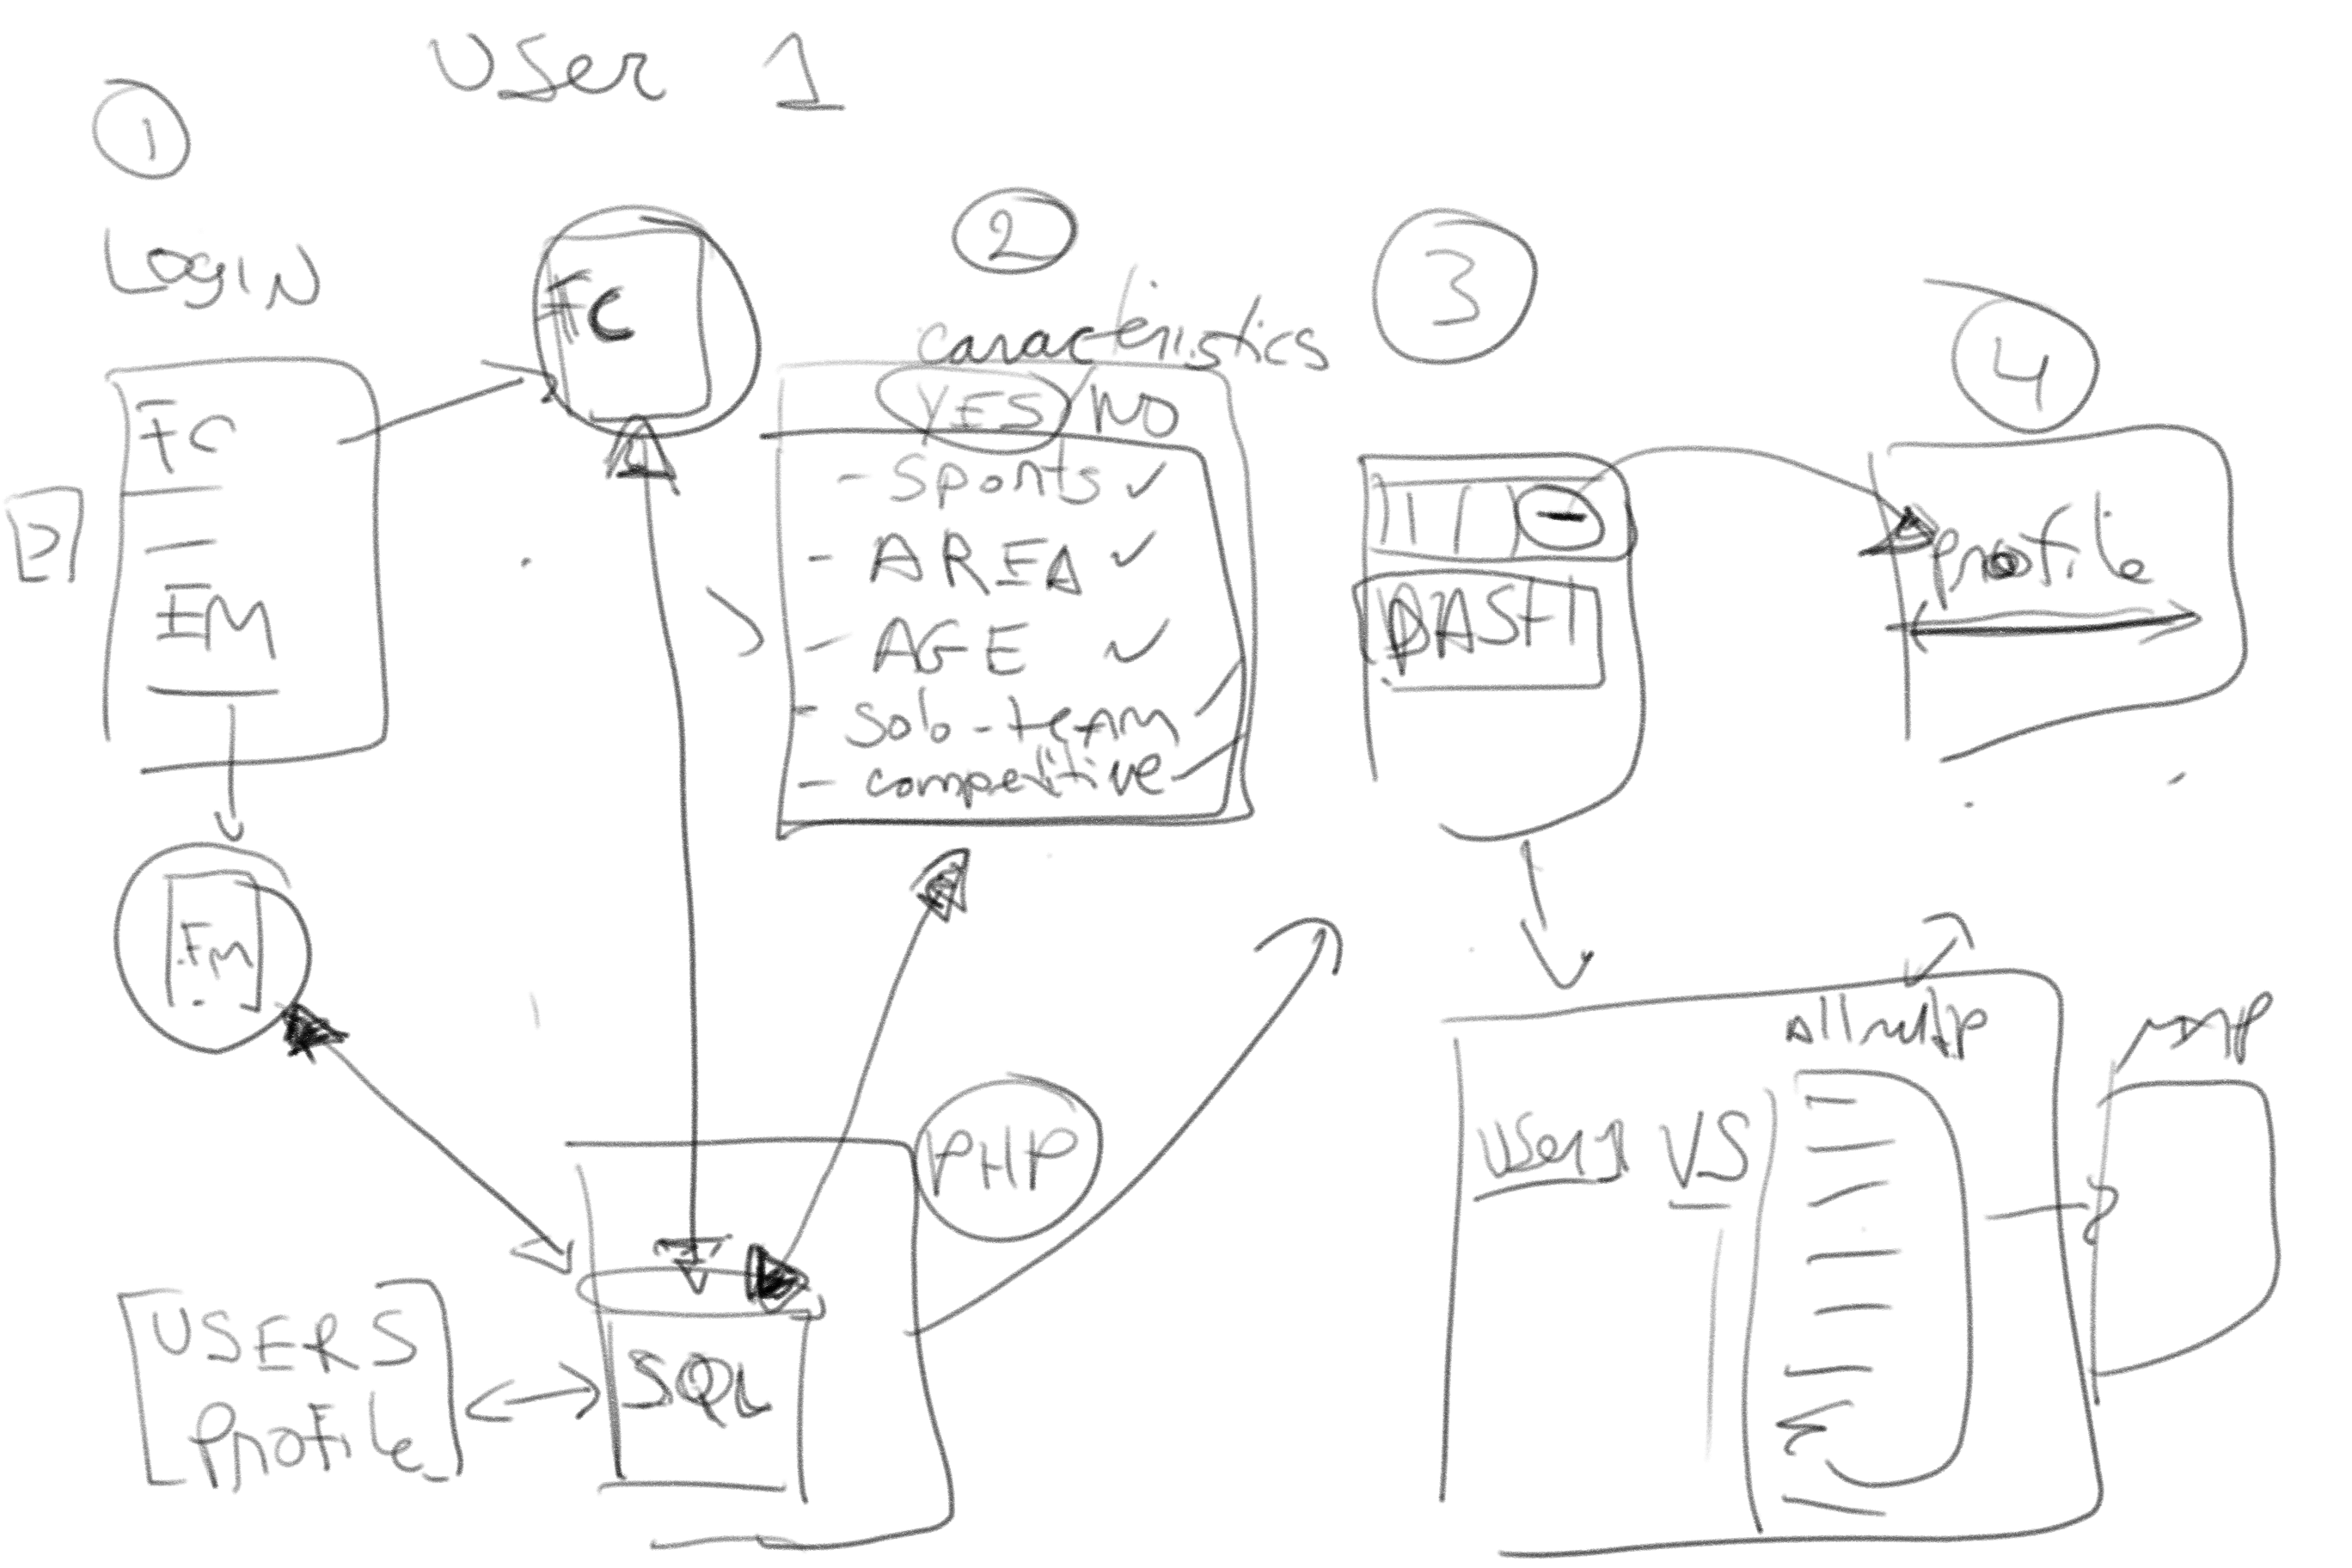 User 1
1
LOGIN
FC
EM
FC
EM
2
caracteristics
YES / NO
- Sports ✓
- AREA ✓
- AGE ✓
- solo-team
- competitive
3
DASH
4
profile
PHP
SQL
USERS
Profile
User 1 VS
map